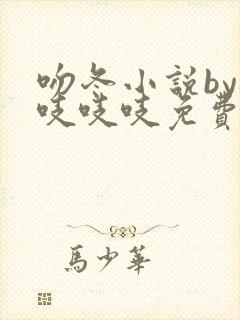 吻冬小説by
吱吱吱免費
馬少華